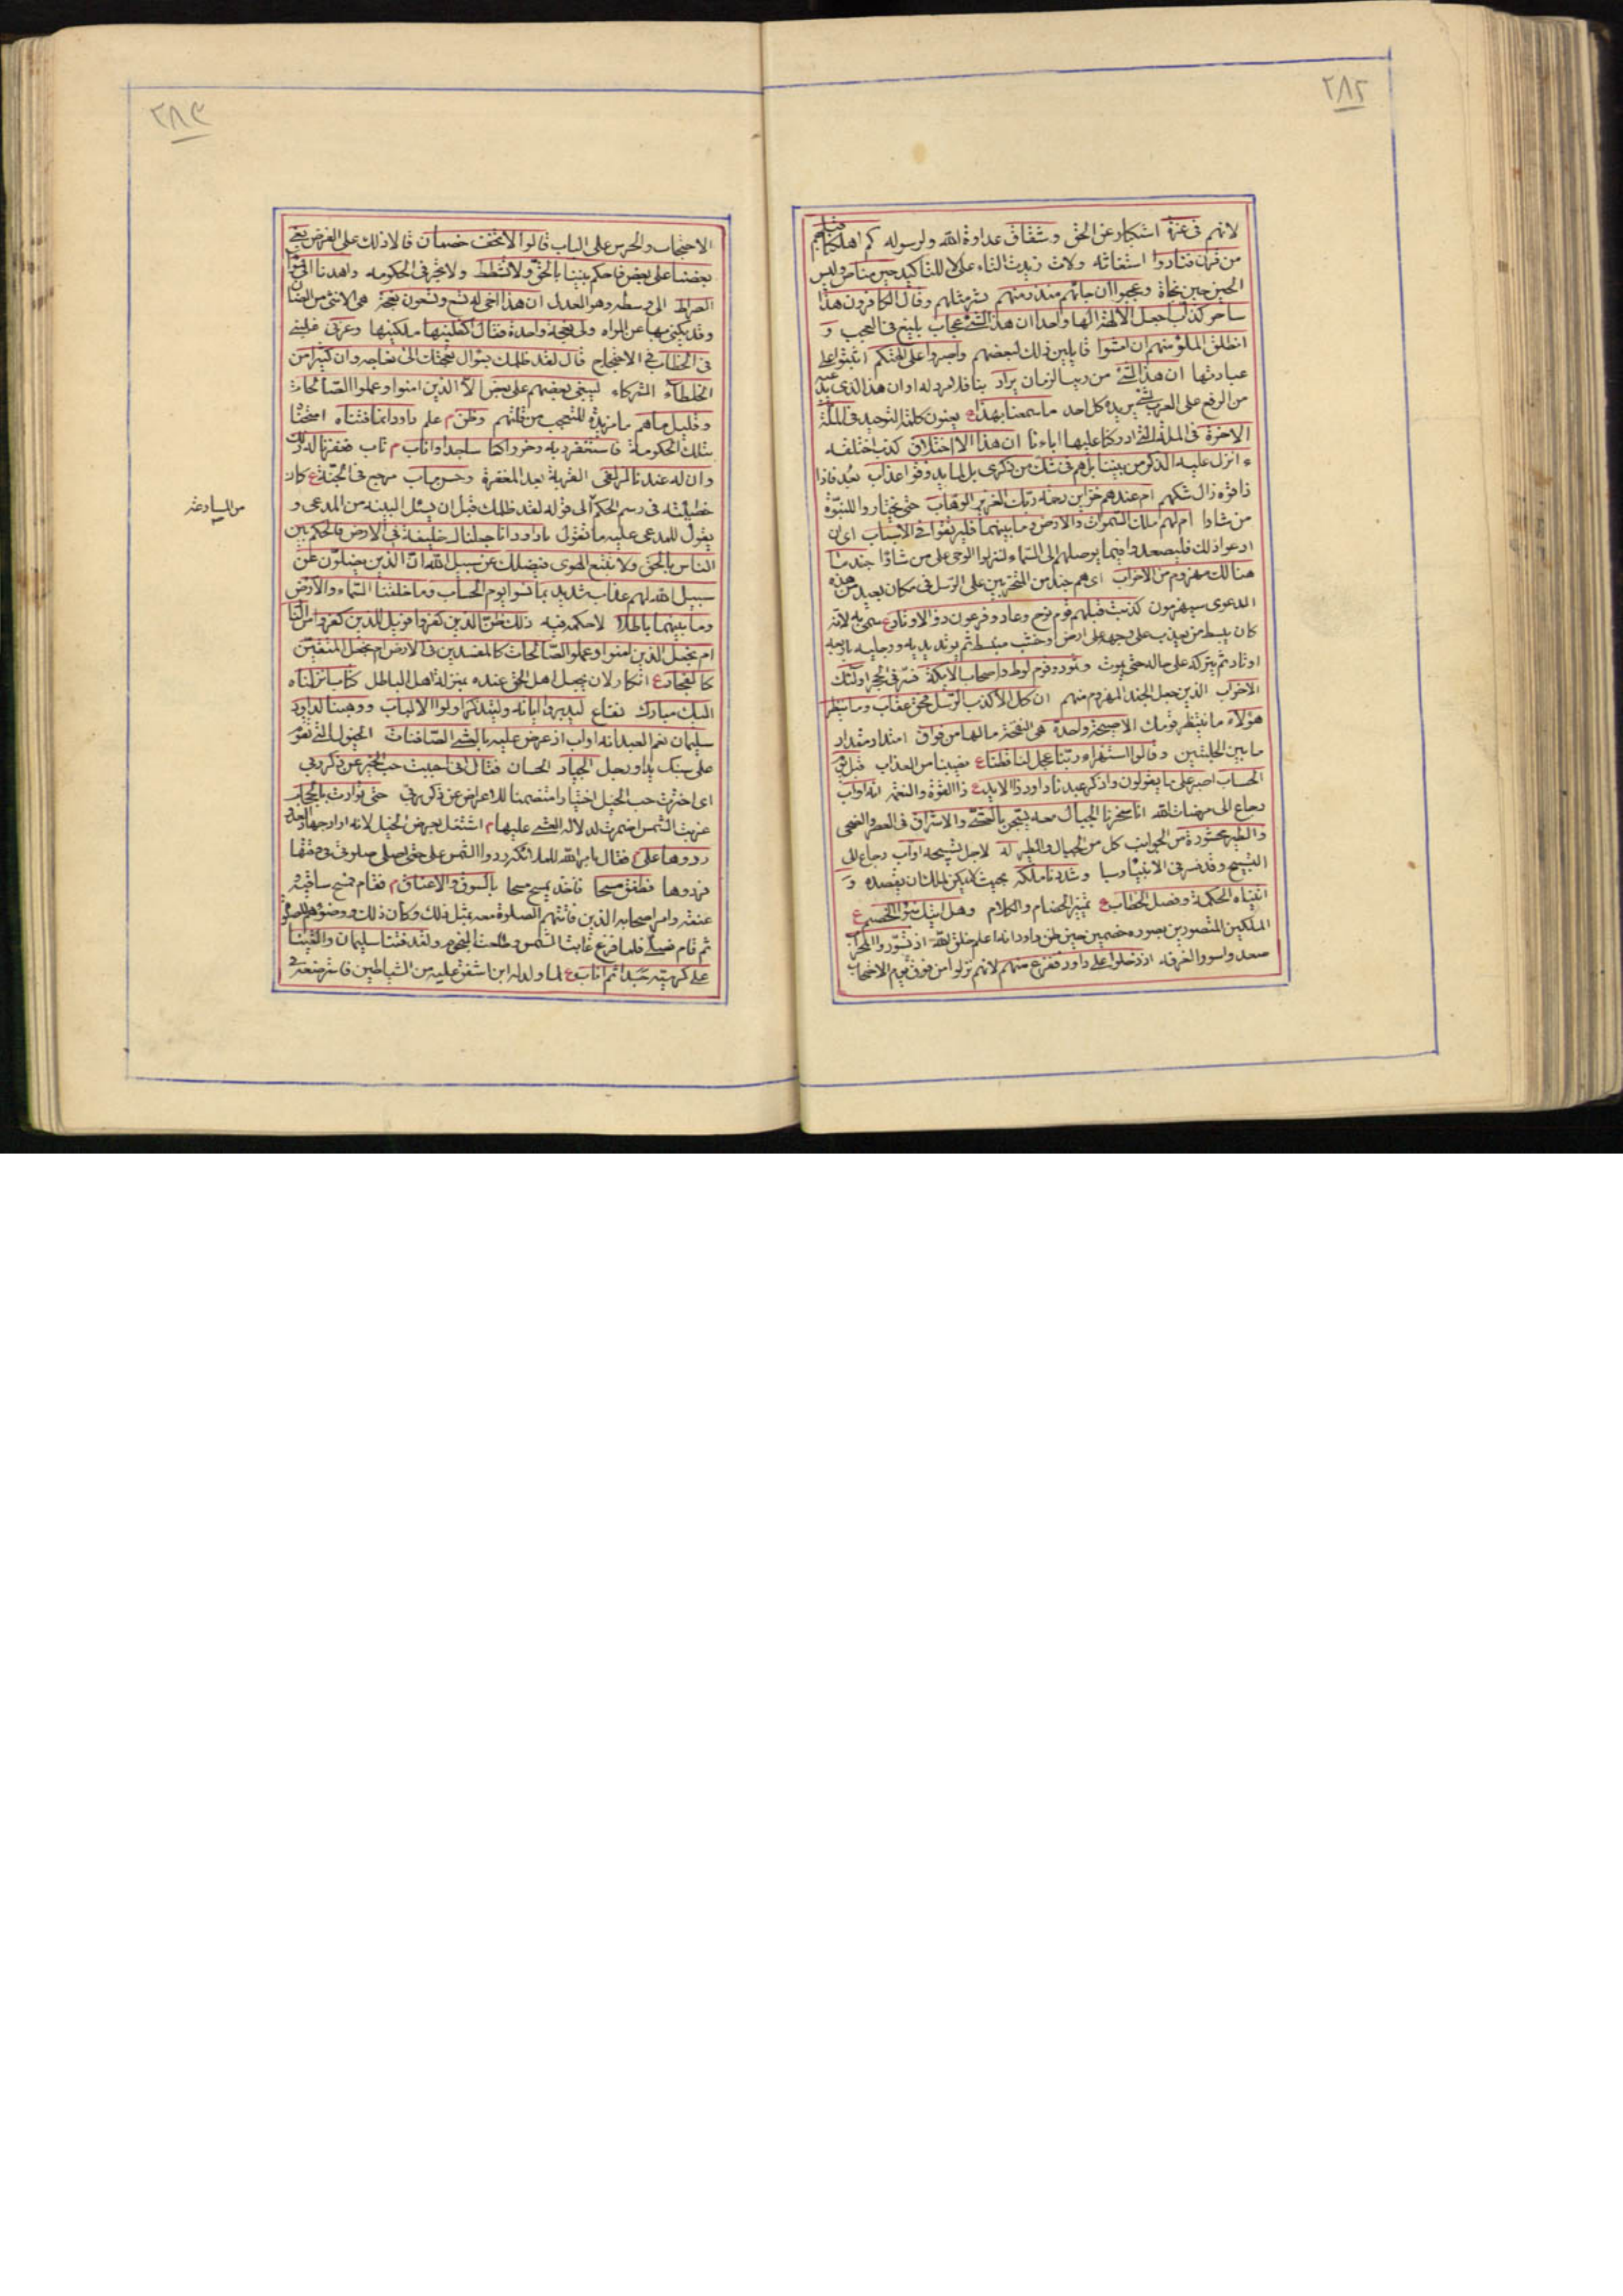 ٢٨٢
لانهم فى عزة استكبار عن الحق وشقاق عداوة لله ولرسوله كم اهلكنا قبلهم
من قرن فنادوا استغاثه ولات زيدت التاء على لا للتاكيد حين مناص وليس
الحين حين نجاة وعجبوا ان جائهم منذر منهم بشر مثلهم وقال الكافرون هذا
ساحر كذاب اجعل الالهة الها واحدا ان هذا لشئ عجاب بليغ فى العجب و
انطلق الملؤ منهم ان امشوا قايلين ذلك لبعضهم واصبروا على الهتكم اثبتوا على
عبادتها ان هذا لشئ من ريب الزمان يراد بنا فلا مرد له او ان هذا الذى
من الرفع على العرب لشئ يريده كل احد ما سمعنا بهذا ع يعنون كلمة التوحيد فى الملة
الاخرة فى الملة التى ادركنا عليها اباءنا ان هذا الا اختلاق كذب اختلقه
ء انزل عليه الذكر من بيننا بل هم فى شك من ذكرى بل لما يذوقوا عذاب بعد فاذا
ذاقوه زال شكهم ام عندهم خزاين رحمة ربك العزيز الوهاب حتى يختاروا للنبوة
من شاؤا ام لهم ملك السموات والارض وما بينهما فليرتقوا فى الاسباب اى ان
ادعوا ذلك فليصعدوا فيما يوصلهم الى السماء لينزلوا الوحى على من شاؤا جند ما
هنالك مهزوم من الاحزاب اى هم جند من المتحزبين على الرسل فى مكان بعيد من هذه
الدعوى سيهزمون كذبت قبلهم قوم نوح وعاد وفرعون ذو الاوتاد ع سمى به لانه
كان يبسط من يعذب على وجهه على ارض او خشب منبسط ثم يوتد يديه ورجليه باربعه
اوتاد ثم يتركه على حاله حتى يموت وثمود وقوم لوط واصحاب الايكة فسر فى الحجر اولئك
الاحزاب الذين جعل الجند المهزوم منهم ان كل الا كذب الرسل فحق عقاب وما ينظر
هؤلاء ما ينتظر قومك الا صيحة واحدة هى النفخة ما لها من فواق امتداد مقدار
ما بين الحلبتين وقالوا استهزاء ربنا عجل لنا قطنا ع نصيبنا من العذاب قبل يوم
الحساب اصبر على ما يقولون واذكر عبدنا داود ذا الايد ع ذا القوة والنعم انه اواب
رجاع الى مرضات الله انا سخرنا الجبال معه يسبحن بالعشى والاشراق فى العصر والضحى
والطير محشورة من الجوانب كل من الجبال والطير له لاجل تسبيحه اواب رجاع الى
التسبيح وقد فسر فى الانبياء وسبا وشددنا ملكه بحيث لم يكن لملك ان يقصده و
اتيناه الحكمة وفصل الخطاب ع تميز الخصام والكلام وهل اتيك نبؤا الخصم ع
الملكين المتصورين بصورة خصمين حين ظن داود انه اعلم خلق الله اذ تسوروا المحراب
صعدوا سور الغرفه اذ دخلوا على داود ففزع منهم لانهم نزلوا من فوق يوم الاحتجاب
٢٨٣
الاحتجاب والحرس على الباب قالوا لا تخف خصمان قالا ذلك على الفرض بغى
بعضنا على بعض فاحكم بيننا بالحق ولا تشطط ولا تجر فى الحكومه واهدنا الى سواء
الصراط الى وسطه وهو العدل ان هذا اخى له تسع وتسعون نعجة هى الانثى من الضان
وقد يكنى بها عن المراه ولى نعجة واحدة فقال اكفلنيها ملكنيها وعزنى غلبنى
فى الخطاب فى الاحتجاج قال لقد ظلمك بسؤال نعجتك الى نعاجه وان كثيرا من
الخلطاء الشركاء ليبغى بعضهم على بعض الا الذين امنوا وعملوا الصالحات
وقليل ما هم ما مزيدة للتعجب من قلتهم وظن م علم داود انما فتناه امتحنا
بتلك الحكومة فاستغفر ربه وخر راكعا ساجدا واناب م تاب فغفرنا له ذلك
وان له عندنا لزلفى القربة بعد المغفرة وحسن ماب مرجع فى الجنة ع كان
خطيئته فى رسم الحكم الى قوله لقد ظلمك قبل ان يسئل البينه من المدعى و
يقول للمدعى عليه ما تقول يا داود انا جعلناك خليفة فى الارض فاحكم بين
الناس بالحق ولا تتبع الهوى فيضلك عن سبيل الله ان الذين يضلون عن
سبيل الله لهم عذاب شديد بما نسوا يوم الحساب وما خلقنا السماء والارض
وما بينهما باطلا لا حكمة فيه ذلك ظن الذين كفروا فويل للذين كفروا من النار
ام نجعل الذين امنوا وعملوا الصالحات كالمفسدين فى الارض ام نجعل المتقين
كالفجار ع انكار لان يجعل اهل الحق عنده بمنزلة اهل الباطل كتاب انزلناه
اليك مبارك نفاع ليدبروا اياته وليتذكر اولوا الالباب ووهبنا لداود
سليمان نعم العبد انه اواب اذ عرض عليه بالعشى الصافنات الخيول التى تقوم
على سنبك يد او رجل الجياد الحسان فقال انى احببت حب الخير عن ذكر ربى
اى اخترت حب الخيل اختيارا متضمنا للاعراض عن ذكر ربى حتى توارت بالحجاب
غربت الشمس اضمرت لدلالة العشى عليها م اشتغل بعرض الخيل لانه اراد جهاد العدو
ردوها على م فقال بامر الله للملائكة ردوا الشمس على حتى اصلى صلوتى فى وقتها
فردوها فطفق مسحا فاخذ يمسح مسحا بالسوق والاعناق م فقام فمسح ساقيه و
عنقه وامر اصحابه الذين فاتتهم الصلوة معه بمثل ذلك وكان ذلك وضوءهم للصلوة
ثم قام فصلى فلما فرغ غابت الشمس وطلعت النجوم ولقد فتنا سليمان والقينا
على كرسيه جسدا ثم اناب ع لما ولد له ابن اشفق عليه من الشياطين فاسترضعه فى